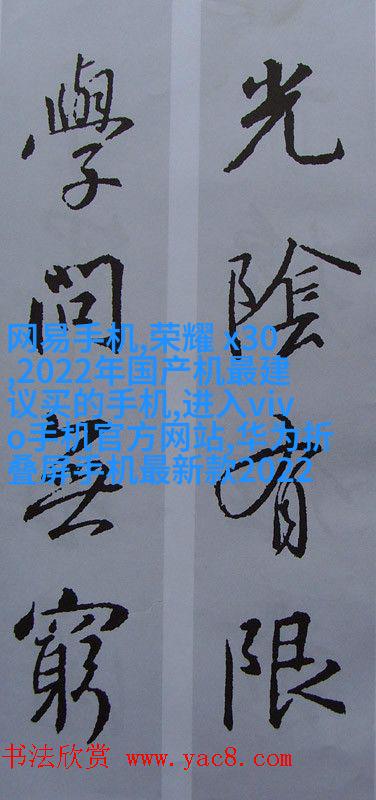 光陰有限
學問無窮
网易手机,荣耀 x30
,2022年国产机最建
议买的手机,进入viv
o手机官方网站,华为折
叠屏手机最新款2022
书法欣赏 www.yac8.com